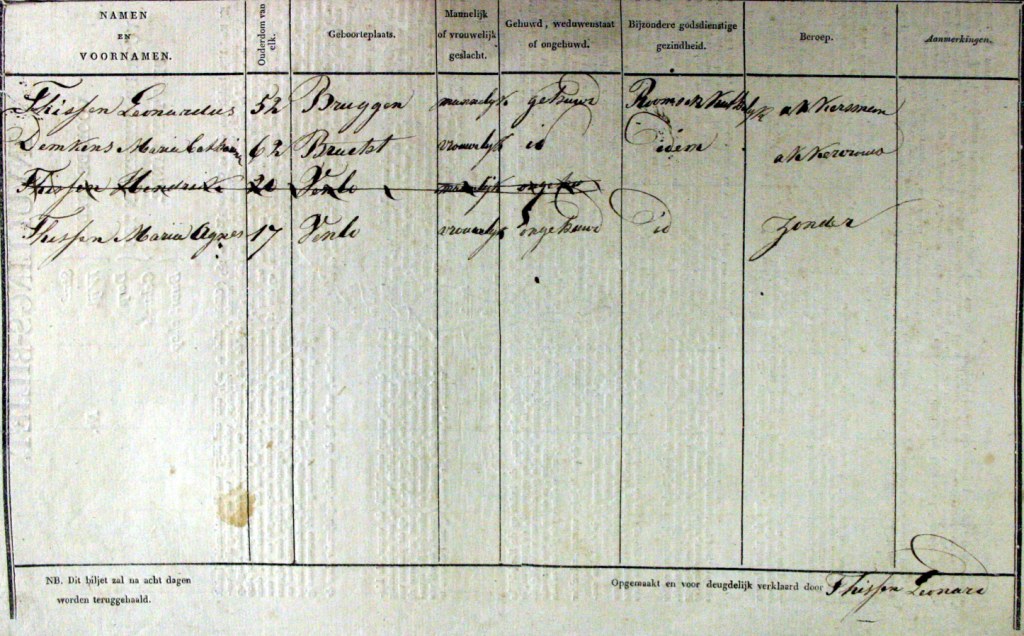 NAMEN EN VOORNAMEN. Ouderdom van elk. Geboorteplaats. Mannelijk of vrouwelijk geslacht. Gehuwd, weduwenstaat of ongehuwd. Bijzondere godsdienstige gezindheid. Beroep. Aanmerkingen.
Thissen Leonardus 52 Bruggen mannelijk gehuwt Roomsch akkersmen
Demkens Maria 62 Bracht vrouwelijk id idem akkervrouw
Thissen Hendrik 20 Venlo mannelijk
Thissen Maria Agnes 17 Venlo vrouwelijk ongehuwt id zonder
NB. Dit biljet zal na acht dagen
worden teruggehaald.
Opgemaakt en voor deugdelijk verklaard door Thissen Leonard